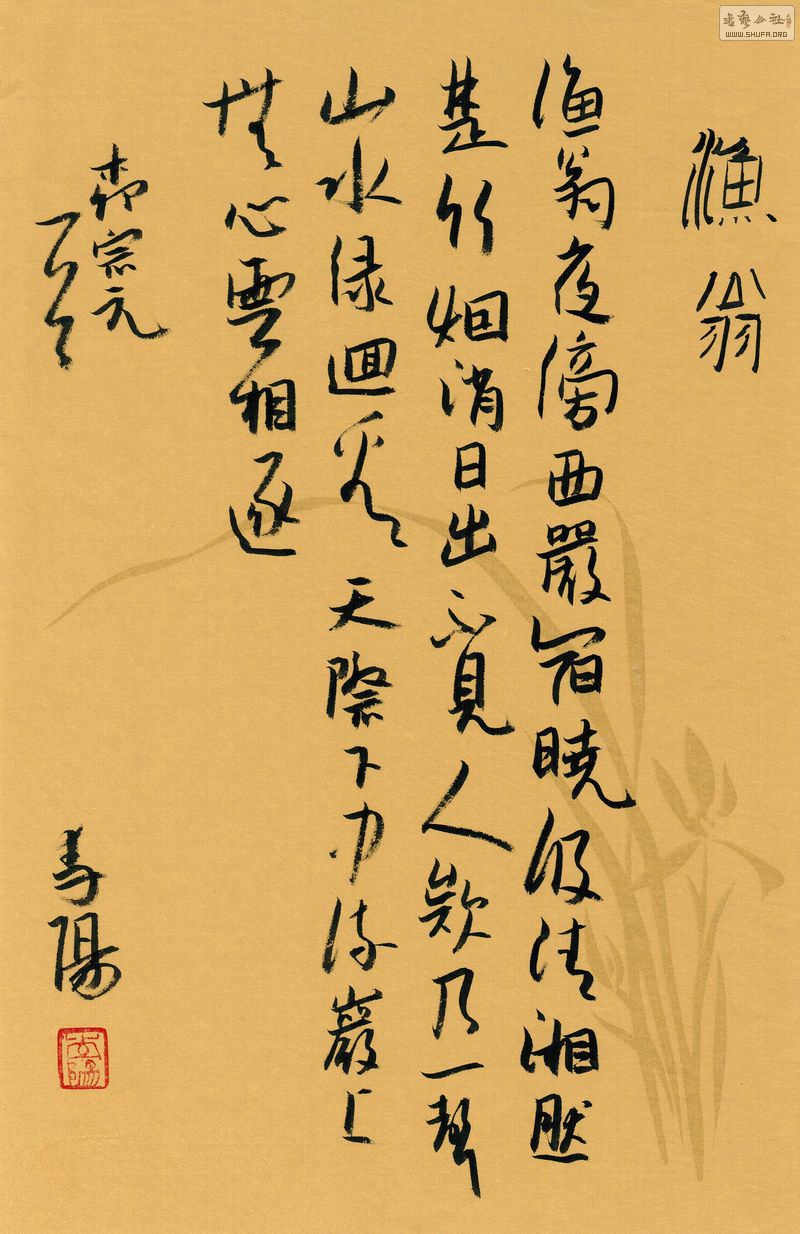 書藝公社
WWW.SHUFA.ORG
漁翁
渔翁夜傍西嚴宿曉汲清湘然
楚竹烟消日出不見人欸乃一聲
山水绿迴看天際下中流巖上
無心雲相逐
柳宗元
陽